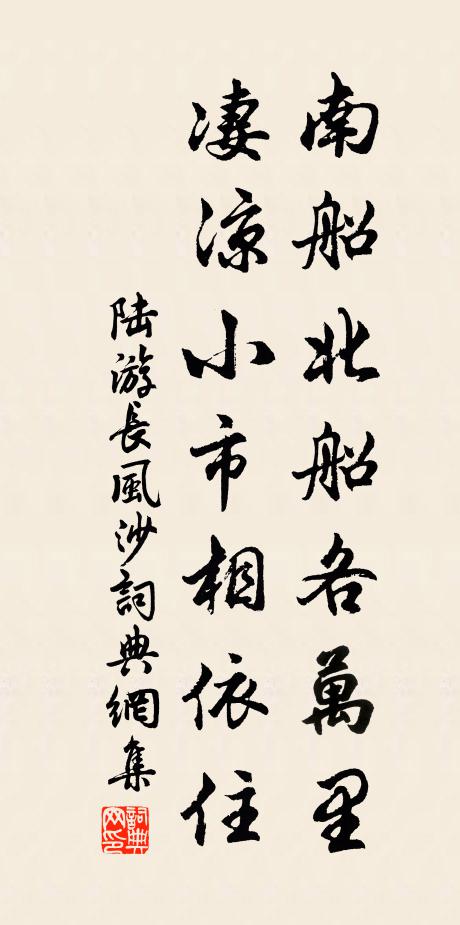 南船北船各萬里
凄涼小市相依住
陸游長風沙詞典網集
詞典网印